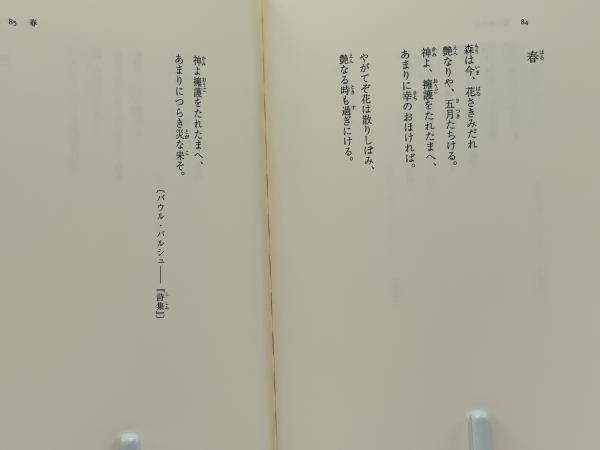 84
春
森は今、花さきみだれ
艶なりや、五月たちける。
神よ、擁護をたれたまへ、
あまりに幸のおほければ。
やがてぞ花は散りしぼみ、
艶なる時も過ぎにける。
85 春
神よ擁護をたれたまへ、
あまりにつらき災な来そ。
〔パウル・バルシュ――『詩集』〕